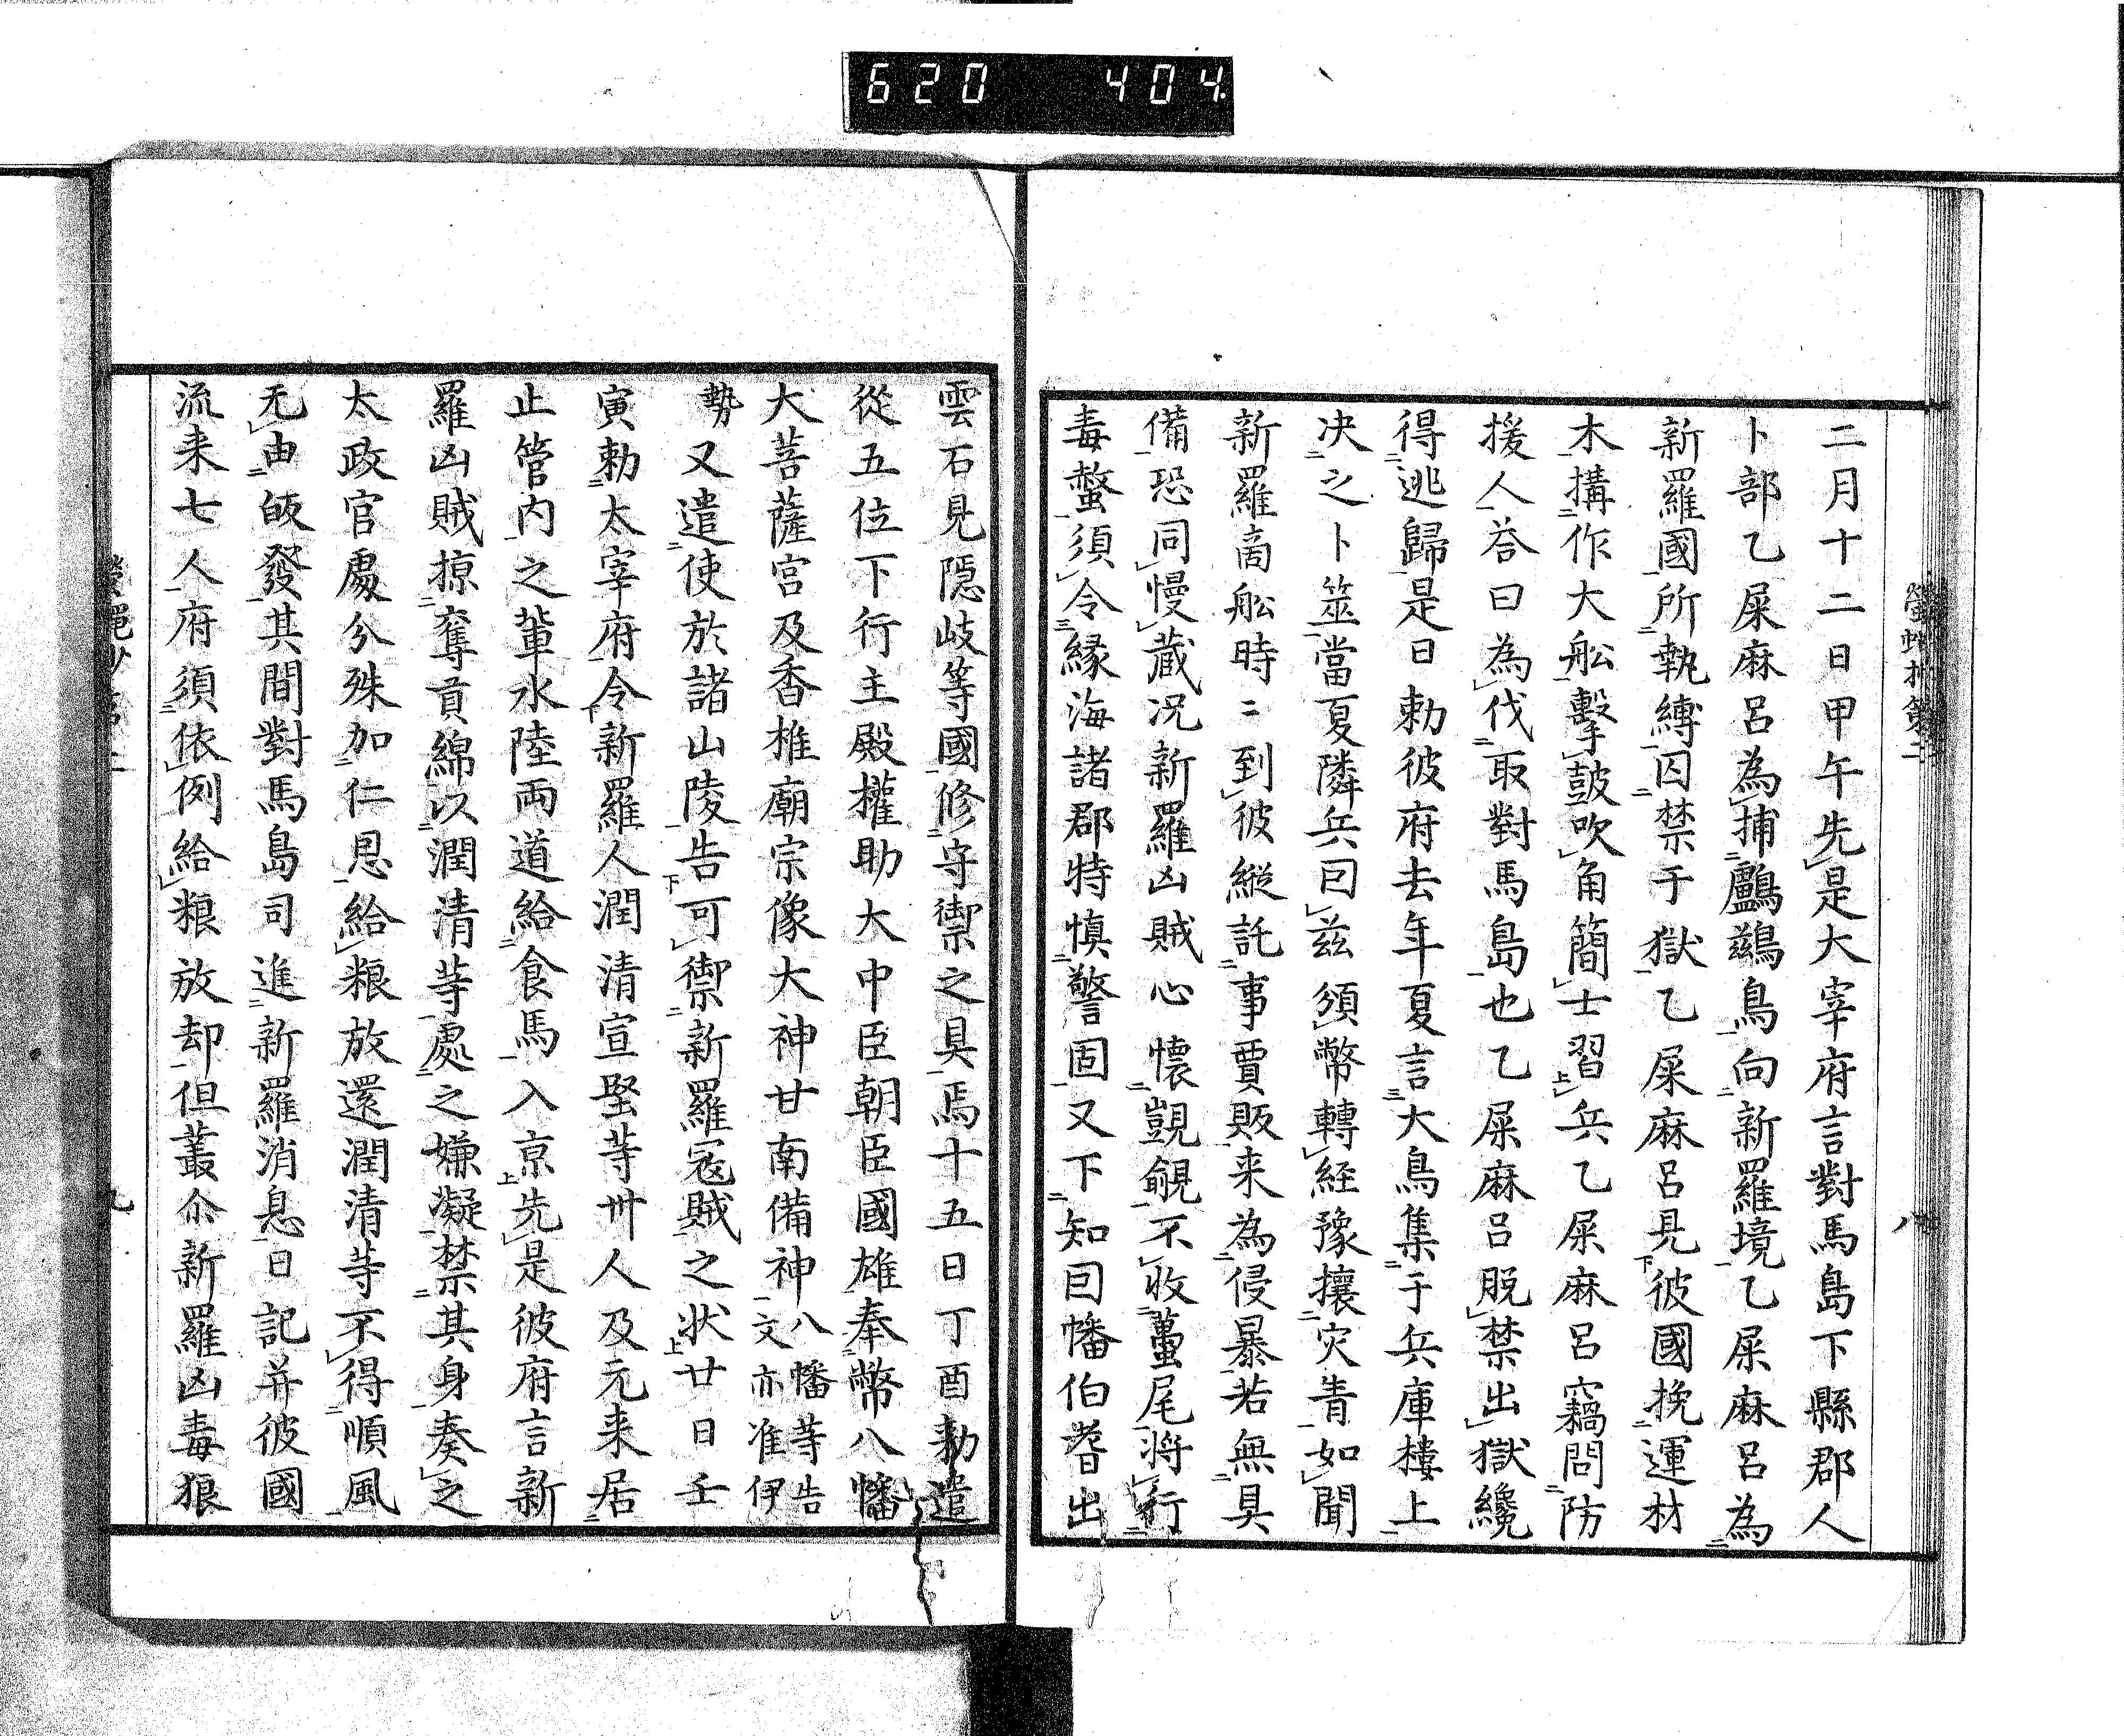 620 404
二月十二日甲午先是大宰府言對馬島下縣郡人
卜部乙屎麻呂為捕鸕鷀鳥向新羅境乙屎麻呂為
新羅國所執縛囚禁于獄乙屎麻呂見彼國挽運材
木搆作大舩擊皷吹角簡士習兵乙屎麻呂竊問防
援人荅曰為伐取對馬島也乙屎麻呂脱禁出獄纔
得逃歸是日勅彼府去年夏言大鳥集于兵庫樓上
决之卜筮當夏隣兵囙兹頒幣轉経豫攘灾青如聞
新羅商舩時〻到彼縱託事賈販来為侵暴若無具
備恐同慢蔵况新羅凶賊心懷覬覦不收蠆尾将行
毒螫須令縁海諸郡特慎警固又下知囙幡伯耆出
雲石見隠岐等國修守禦之具焉十五日丁酉勅遣
從五位下行主殿權助大中臣朝臣國雄奉幣八幡
大菩薩宮及香椎廟宗像大神甘南備神
八幡䒭告
文亦准伊
勢又遣使於諸山陵告可禦新羅寇賊之状廿日壬
寅勅太宰府令新羅人潤清宣堅䒭卅人及元来居
止管内之輩水陸両道給食馬入京先是彼府言新
羅凶賊掠奪貢綿以潤清䒭處之嫌凝禁其身奏之
太政官處分殊加仁恩給粮放還潤清䒭不得順風
无由皈發其間對馬島司進新羅消息日記并彼國
流来七人府須依例給粮放却但叢尒新羅凶毒狼
八
九